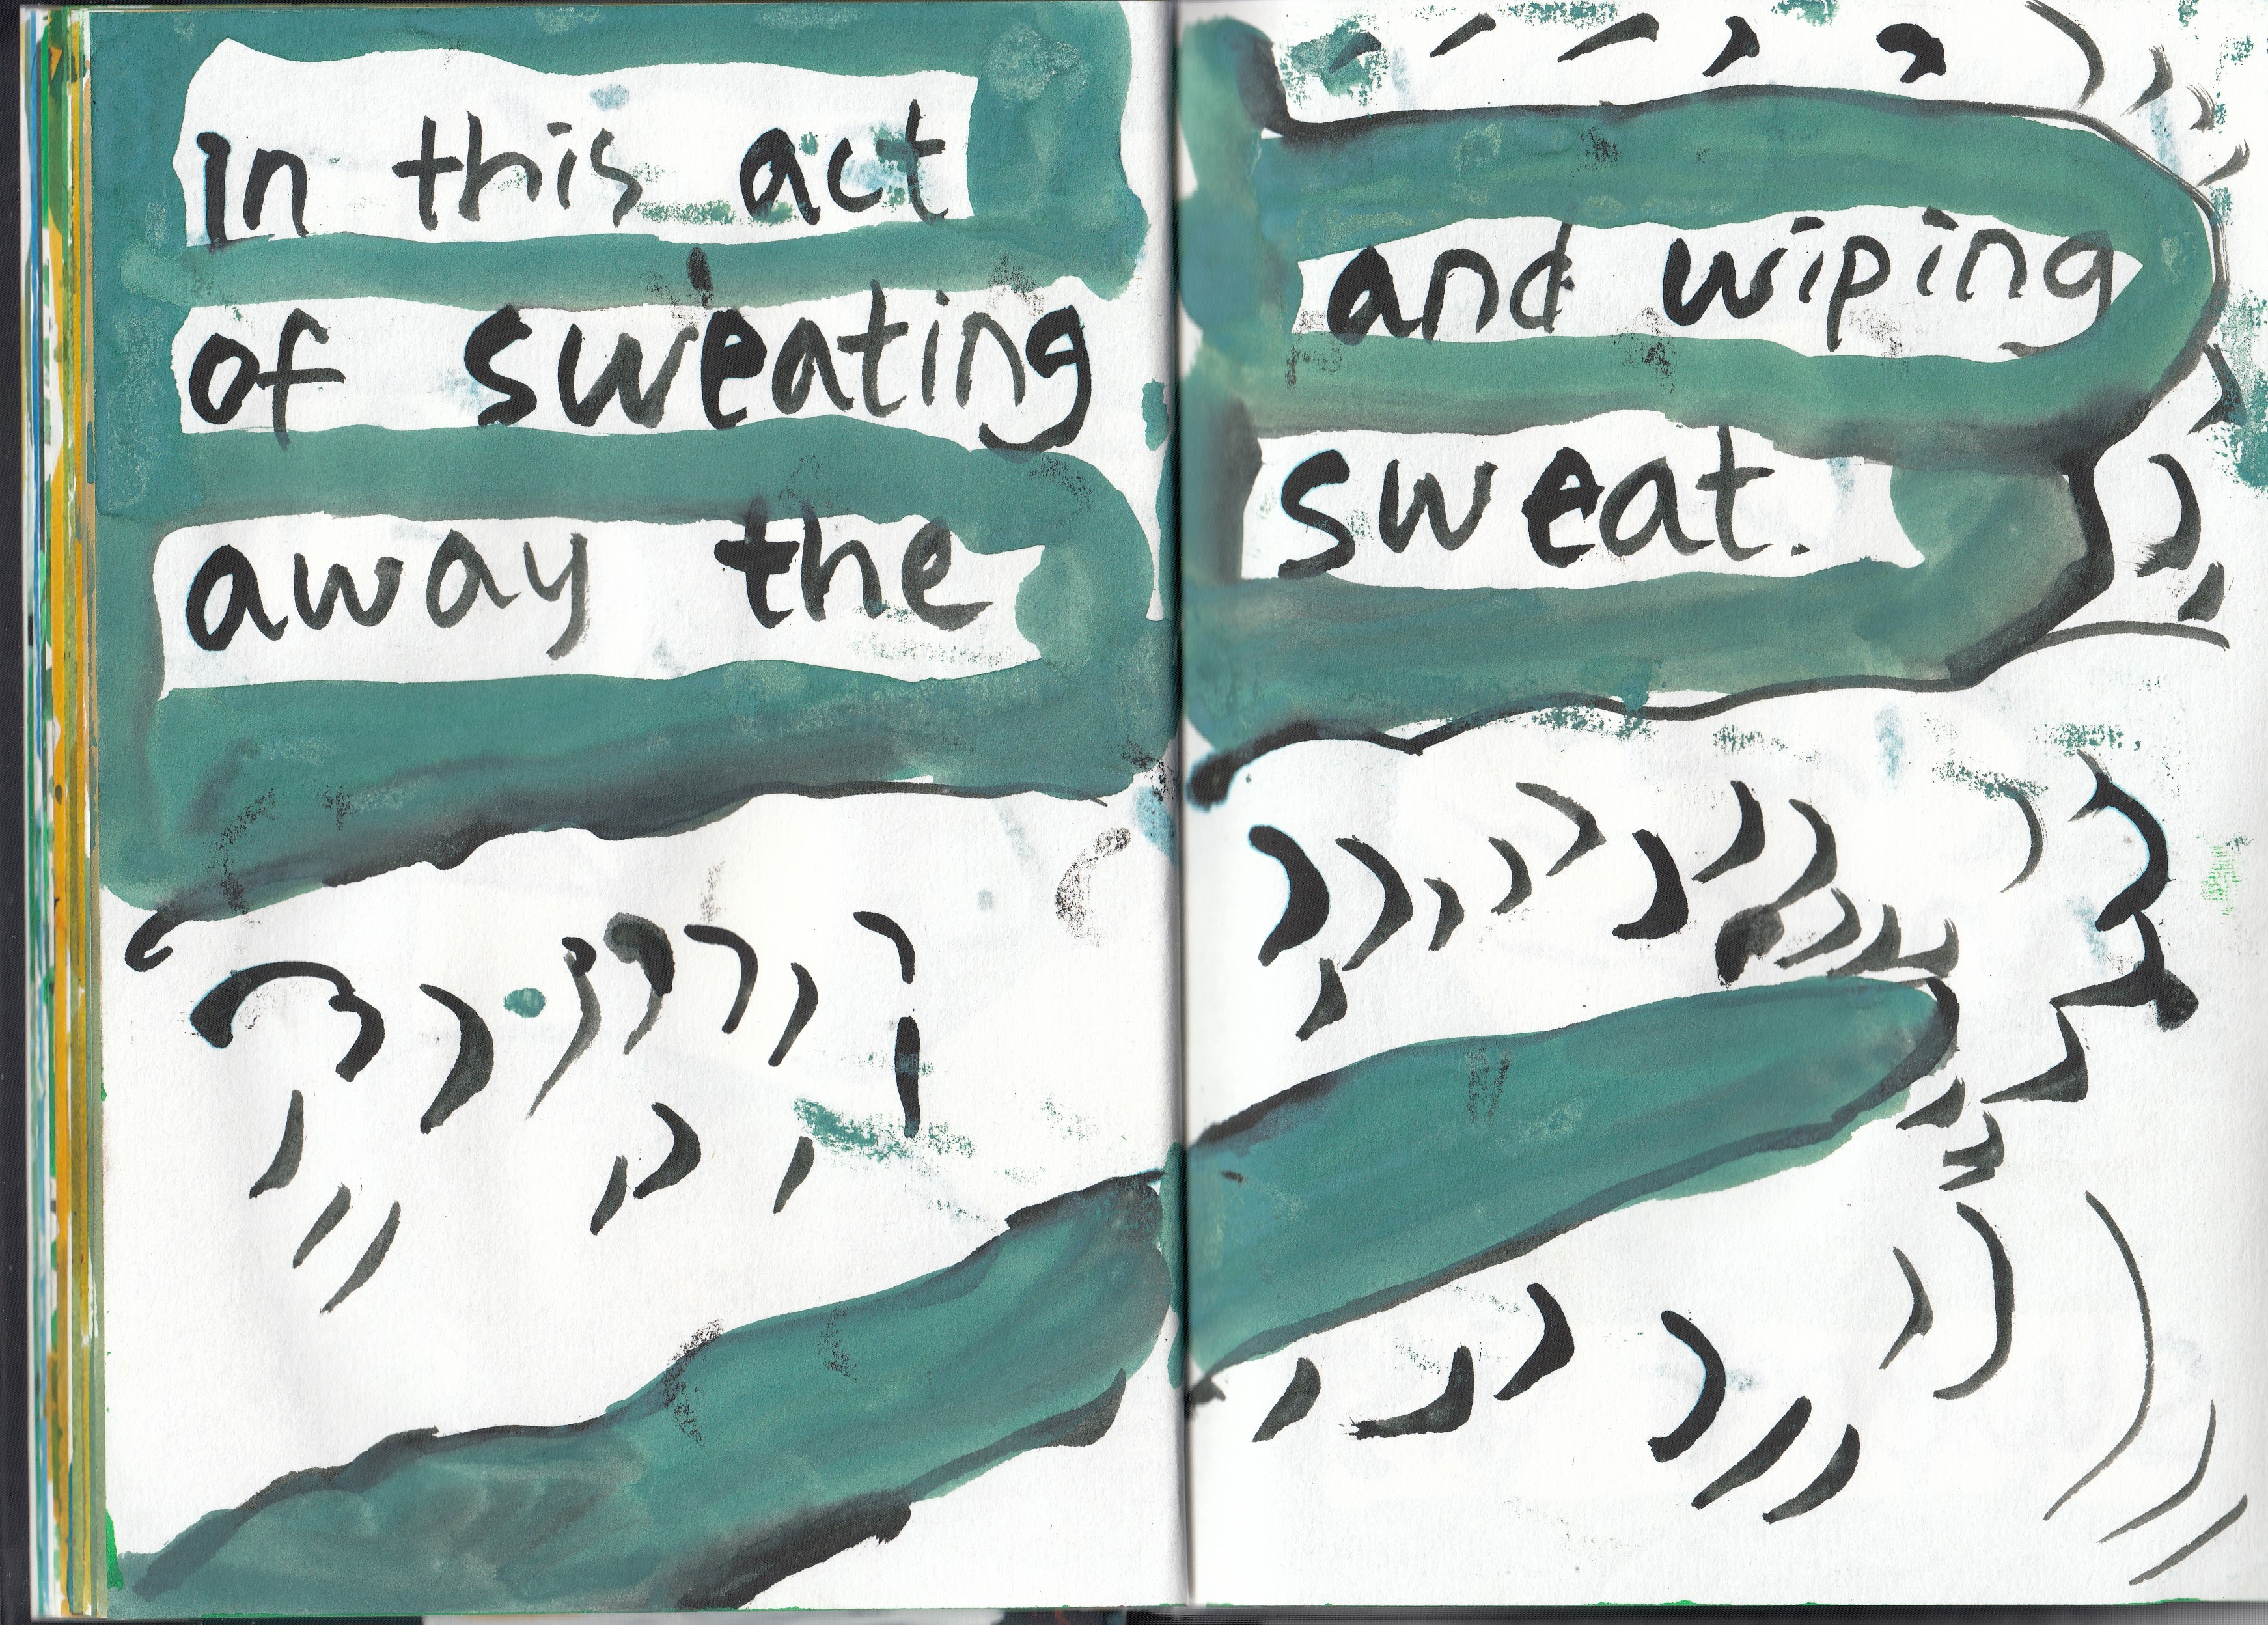 In this act
of sweating
away the
and wiping
sweat.